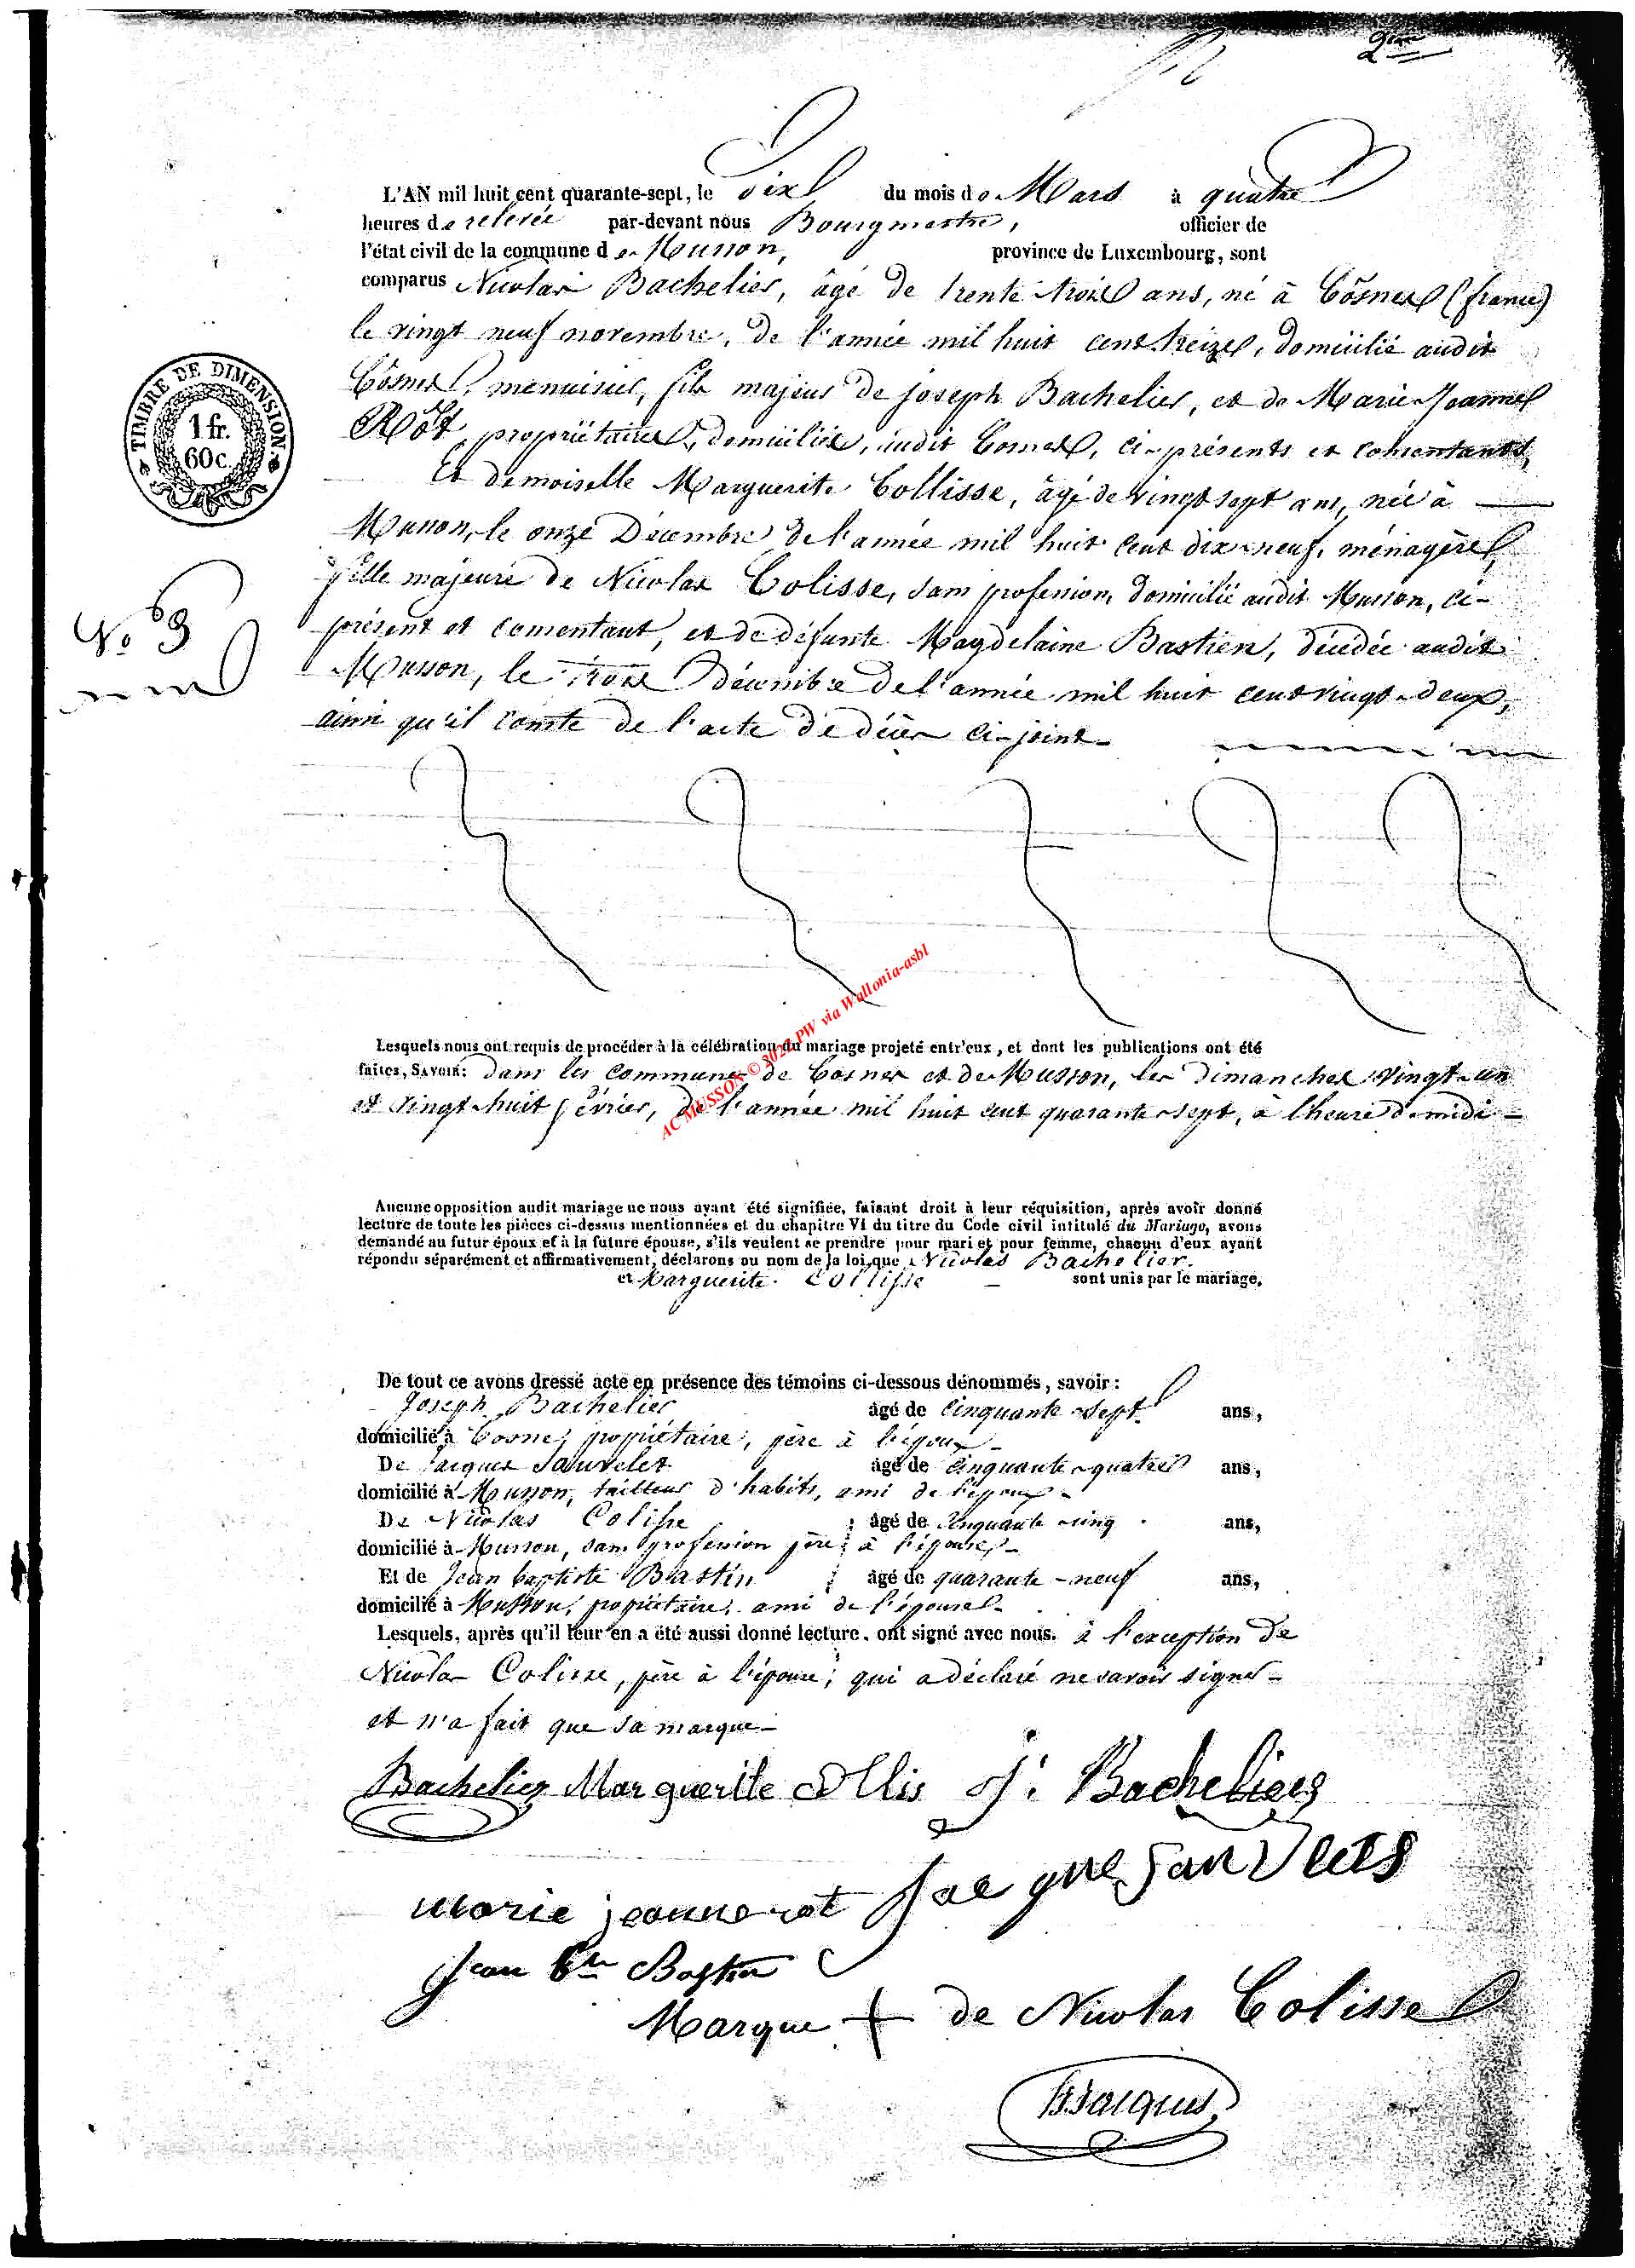 2me
L'AN mil huit cent quarante-sept, le dix du mois de Mars à quatre
heures de relevée par-devant nous Bourgmestre, officier de
l'état civil de la commune de Musson, province de Luxembourg, sont
comparus Nicolas Bachelier, âgé de trente trois ans, né à Côsnes (france)
le vingt neuf novembre, de l'année mil huit cent treize, domicilié audit
Côsnes, menuisier, fils majeur de joseph Bachelier, et de Marie Jeanne
Rôt, propriétaires, domiciliés, audit Cosnes, ci-présents et consentants,
Et demoiselle Marguerite Collisse, âgé de vingt sept ans, née à
Musson, le onze Décembre de l'année mil huit cent dix-neuf, ménagère,
fille majeure de Nicolas Colisse, sans profession, domicilié audit Musson, ci-
présent et consentant, et de défunte Magdelaine Bastien, décédée audit
Musson, le trois décembre de l'année mil huit cent vingt-deux,
ainsi qu'il conste de l'acte de décès ci-joint-
TIMBRE DE DIMENSION
1 fr.
60 c.
No 3
Lesquels nous ont requis de procéder à la célébration du mariage projeté entr'eux, et dont les publications ont été
faites, SAVOIR: dans les communes de Cosnes et de Musson, les Dimanches vingt-un
et vingt-huit février, de l'année mil huit cent quarante-sept, à l'heure de midi-
AC MUSSON © 2022 PW via Wallonia-asbl
Aucune opposition audit mariage ne nous ayant été signifiée, faisant droit à leur réquisition, après avoir donné
lecture de toute les pièces ci-dessus mentionnées et du chapitre VI du titre du Code civil intitulé du Mariage, avons
demandé au futur époux et à la future épouse, s'ils veulent se prendre pour mari et pour femme, chacun d'eux ayant
répondu séparément et affirmativement, déclarons au nom de la loi, que Nicolas Bachelier.
et Marguerite Collisse sont unis par le mariage.
De tout ce avons dressé acte en présence des témoins ci-dessous dénommés, savoir:
Joseph Bachelier âgé de cinquante-sept ans,
domicilié à Cosnes, propriétaire, père à l'époux-
De Jacques Sauvelet âgé de cinquante-quatre ans,
domicilié à Musson, tailleur d'habits, ami de l'époux-
De Nicolas Colisse âgé de cinquante-cinq ans,
domicilié à Musson, sans profession père à l'épouse-
Et de Jean baptiste Bastin âgé de quarante-neuf ans,
domicilié à Musson, propriétaire, ami de l'épouse-
Lesquels, après qu'il leur en a été aussi donné lecture, ont signé avec nous. à l'exception de
Nicolas Colisse, père à l'épouse; qui a déclaré ne savoir signer-
et n'a fait que sa marque-
Bachelier Marguerite Collis J: Bacheliers
marie jeanne rot Jacque Sauvlets
Jean Bte Bastin
Marque + de Nicolas Colisse
Jacques